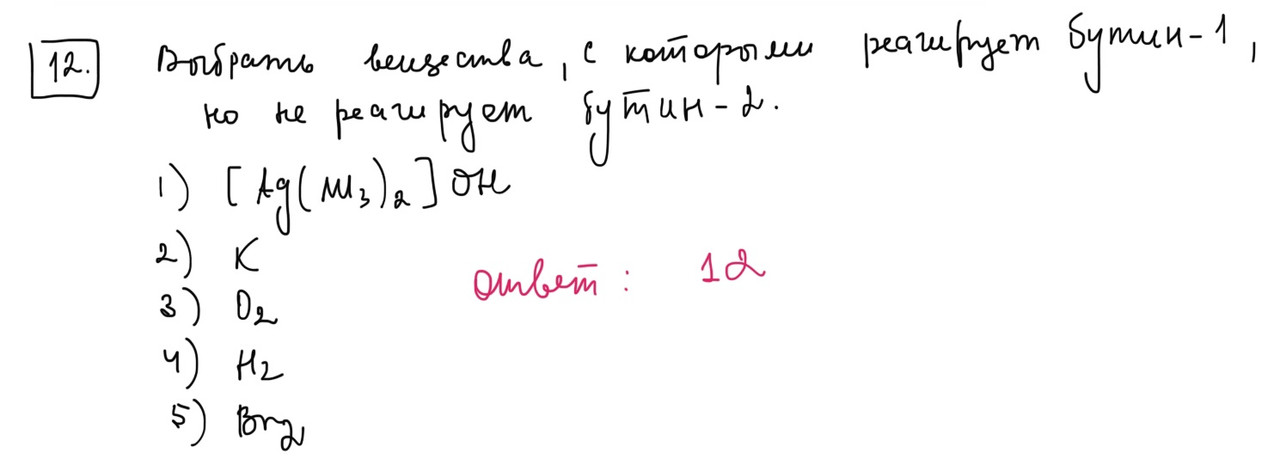 12. Выбрать вещества, с которыми реагирует бутин-1,
но не реагирует бутин-2.
1) [Ag(NH3)2]OH
2) K
3) O2
Ответ: 12
4) H2
5) Br2